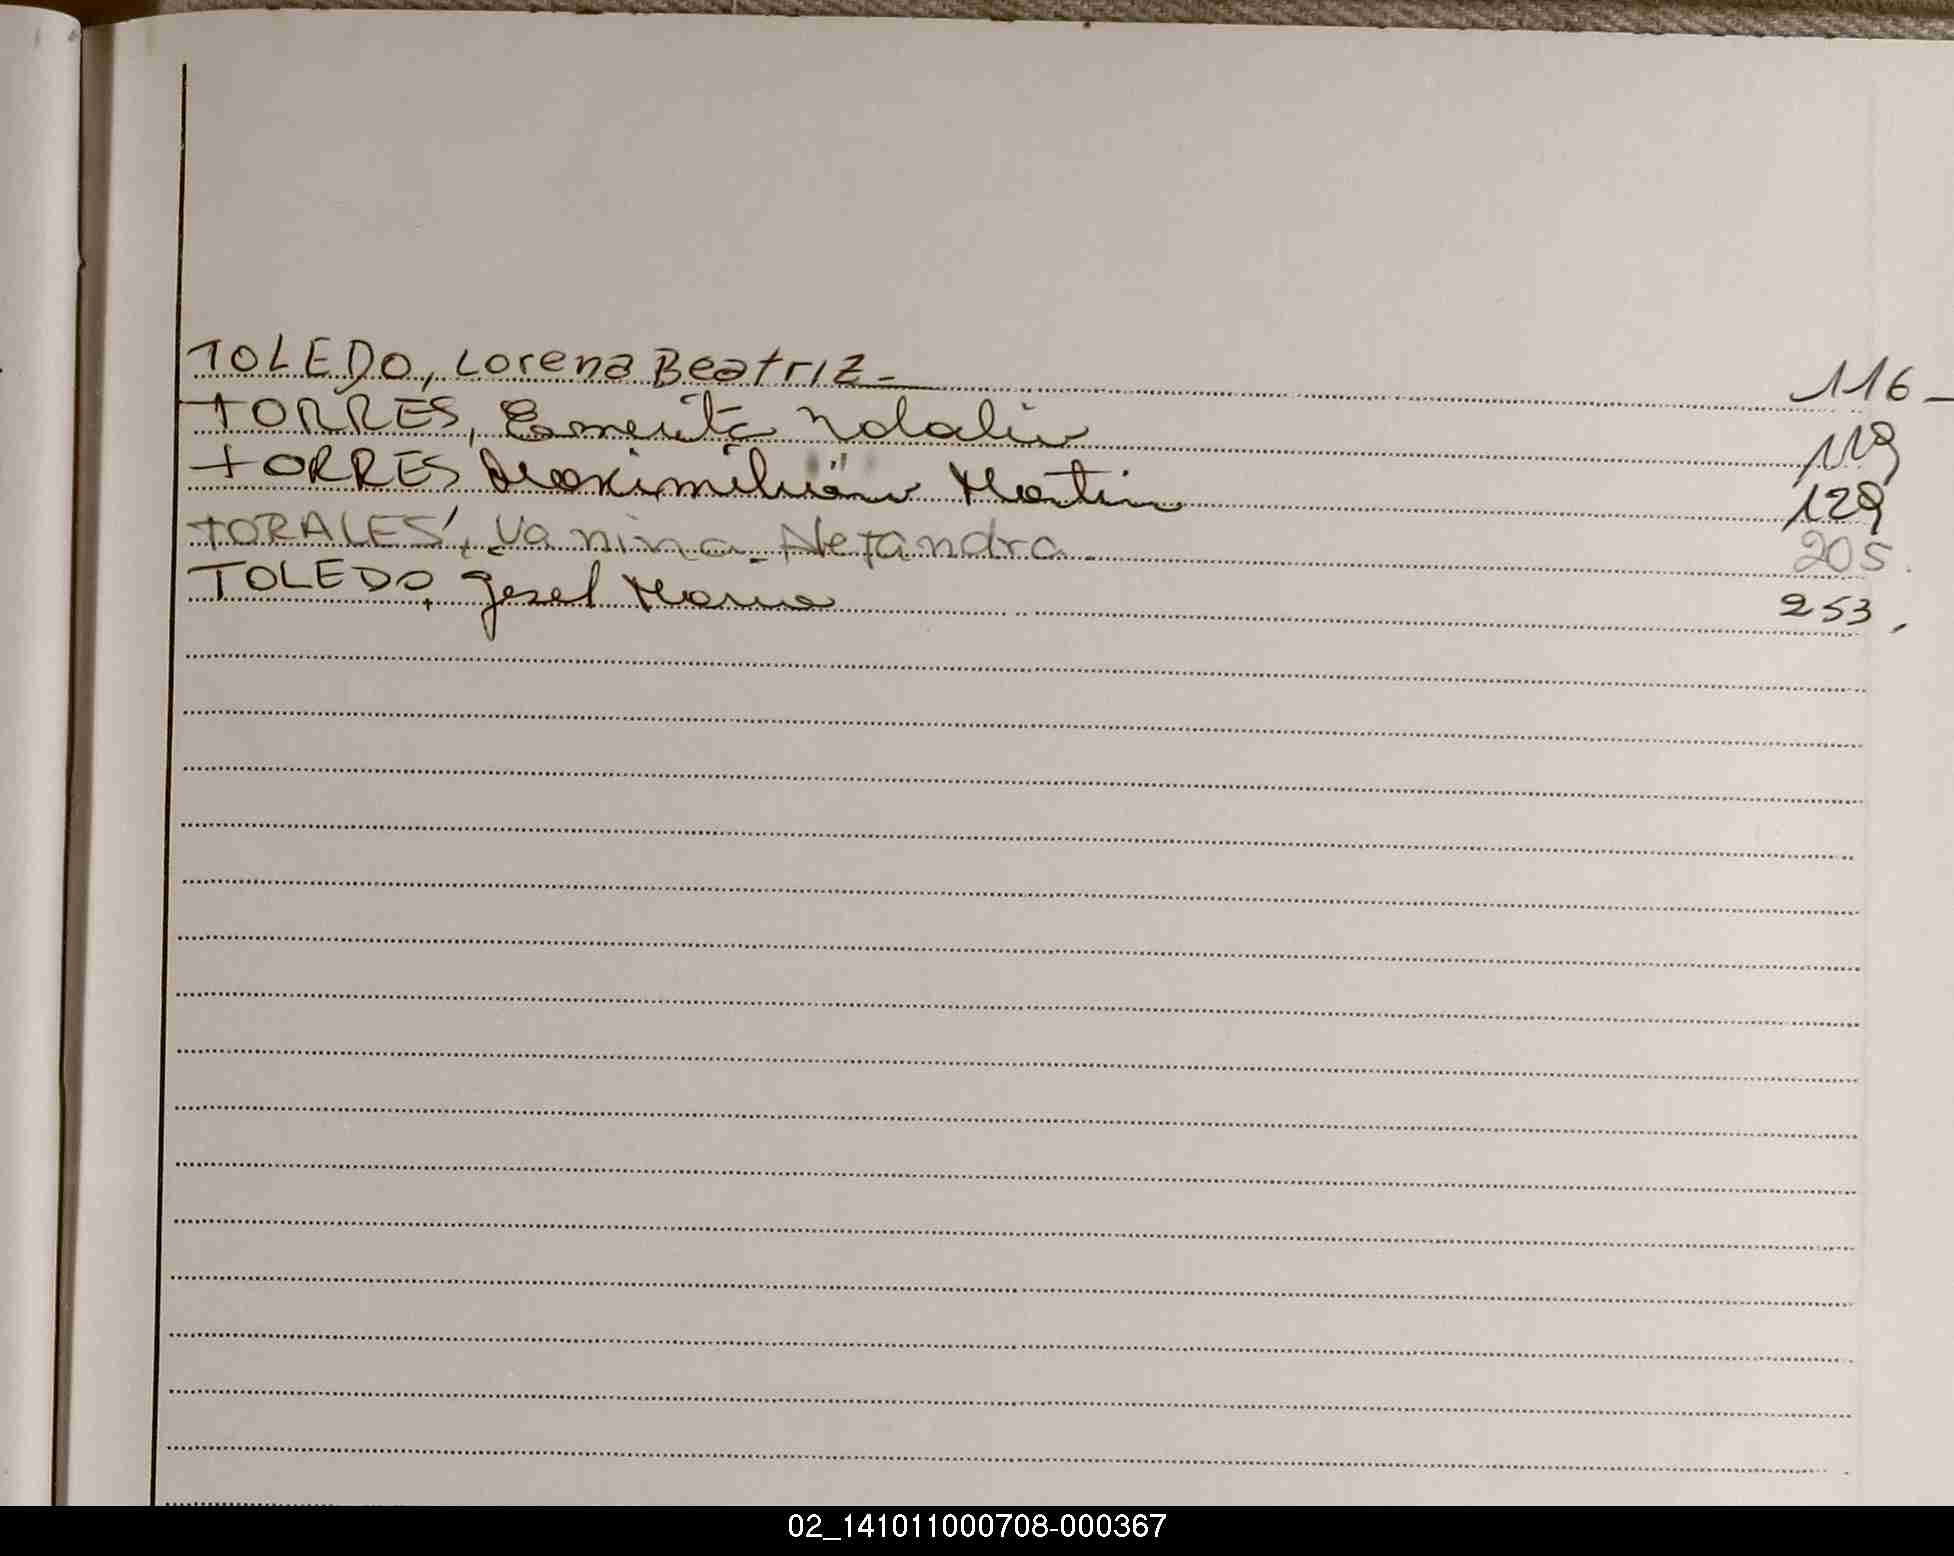 TOLEDO, Lorena Beatriz - 116 -
TORRES, Esmerita Natalia 119
TORRES Maximiliano Martin 129
TORALES, Vanina Alejandra - 205.
TOLEDO, Gesel Maria 253.
02_141011000708-000367